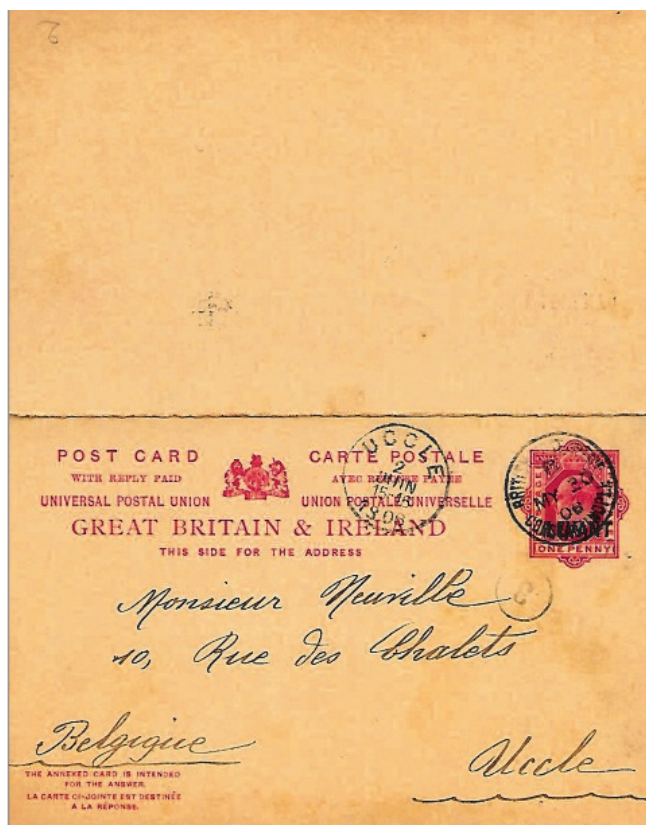 2
POST CARD
CARTE POSTALE
WITH REPLY PAID
AVEC REPONSE PAYEE
UNIVERSAL POSTAL UNION
UNION POSTALE UNIVERSELLE
GREAT BRITAIN & IRELAND
THIS SIDE FOR THE ADDRESS
UCCLE
2
JUIN
1908
BRITISH
MY 30
08
CONSTANTINOPLE
ONE PENNY
Monsieur Neuville
10, Rue des Chalets
Belgique
Uccle
THE ANNEXED CARD IS INTENDED
FOR THE ANSWER.
LA CARTE CI-JOINTE EST DESTINÉE
A LA RÉPONSE.